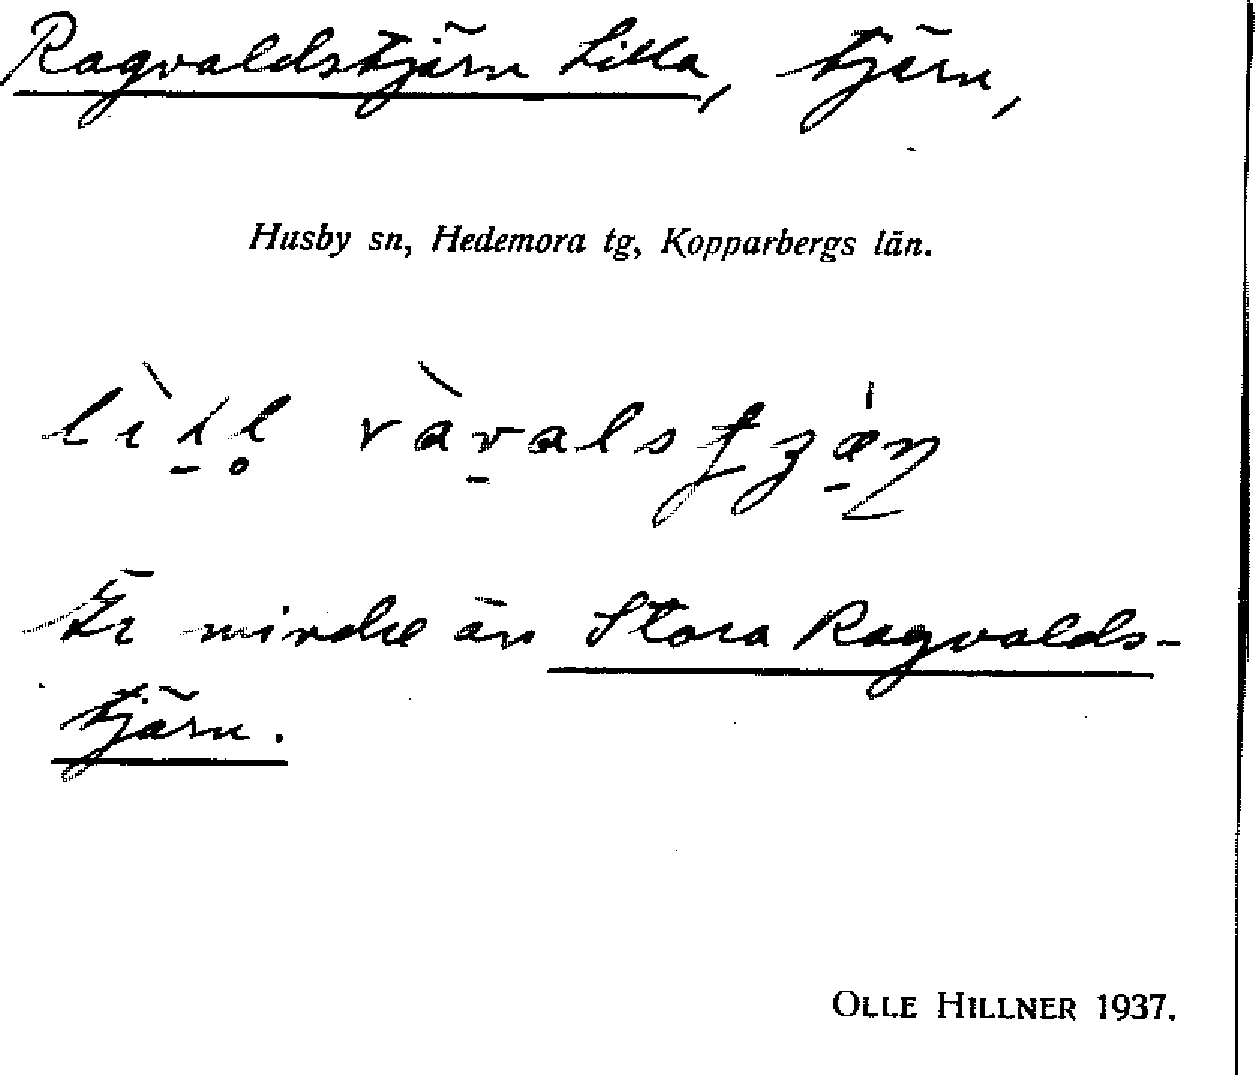 Ragvaldstjärn Lilla, tjärn,
Husby sn, Hedemora tg, Kopparbergs län.
Är mindre än Stora Ragvalds-
tjärn.
OLLE HILLNER 1937.